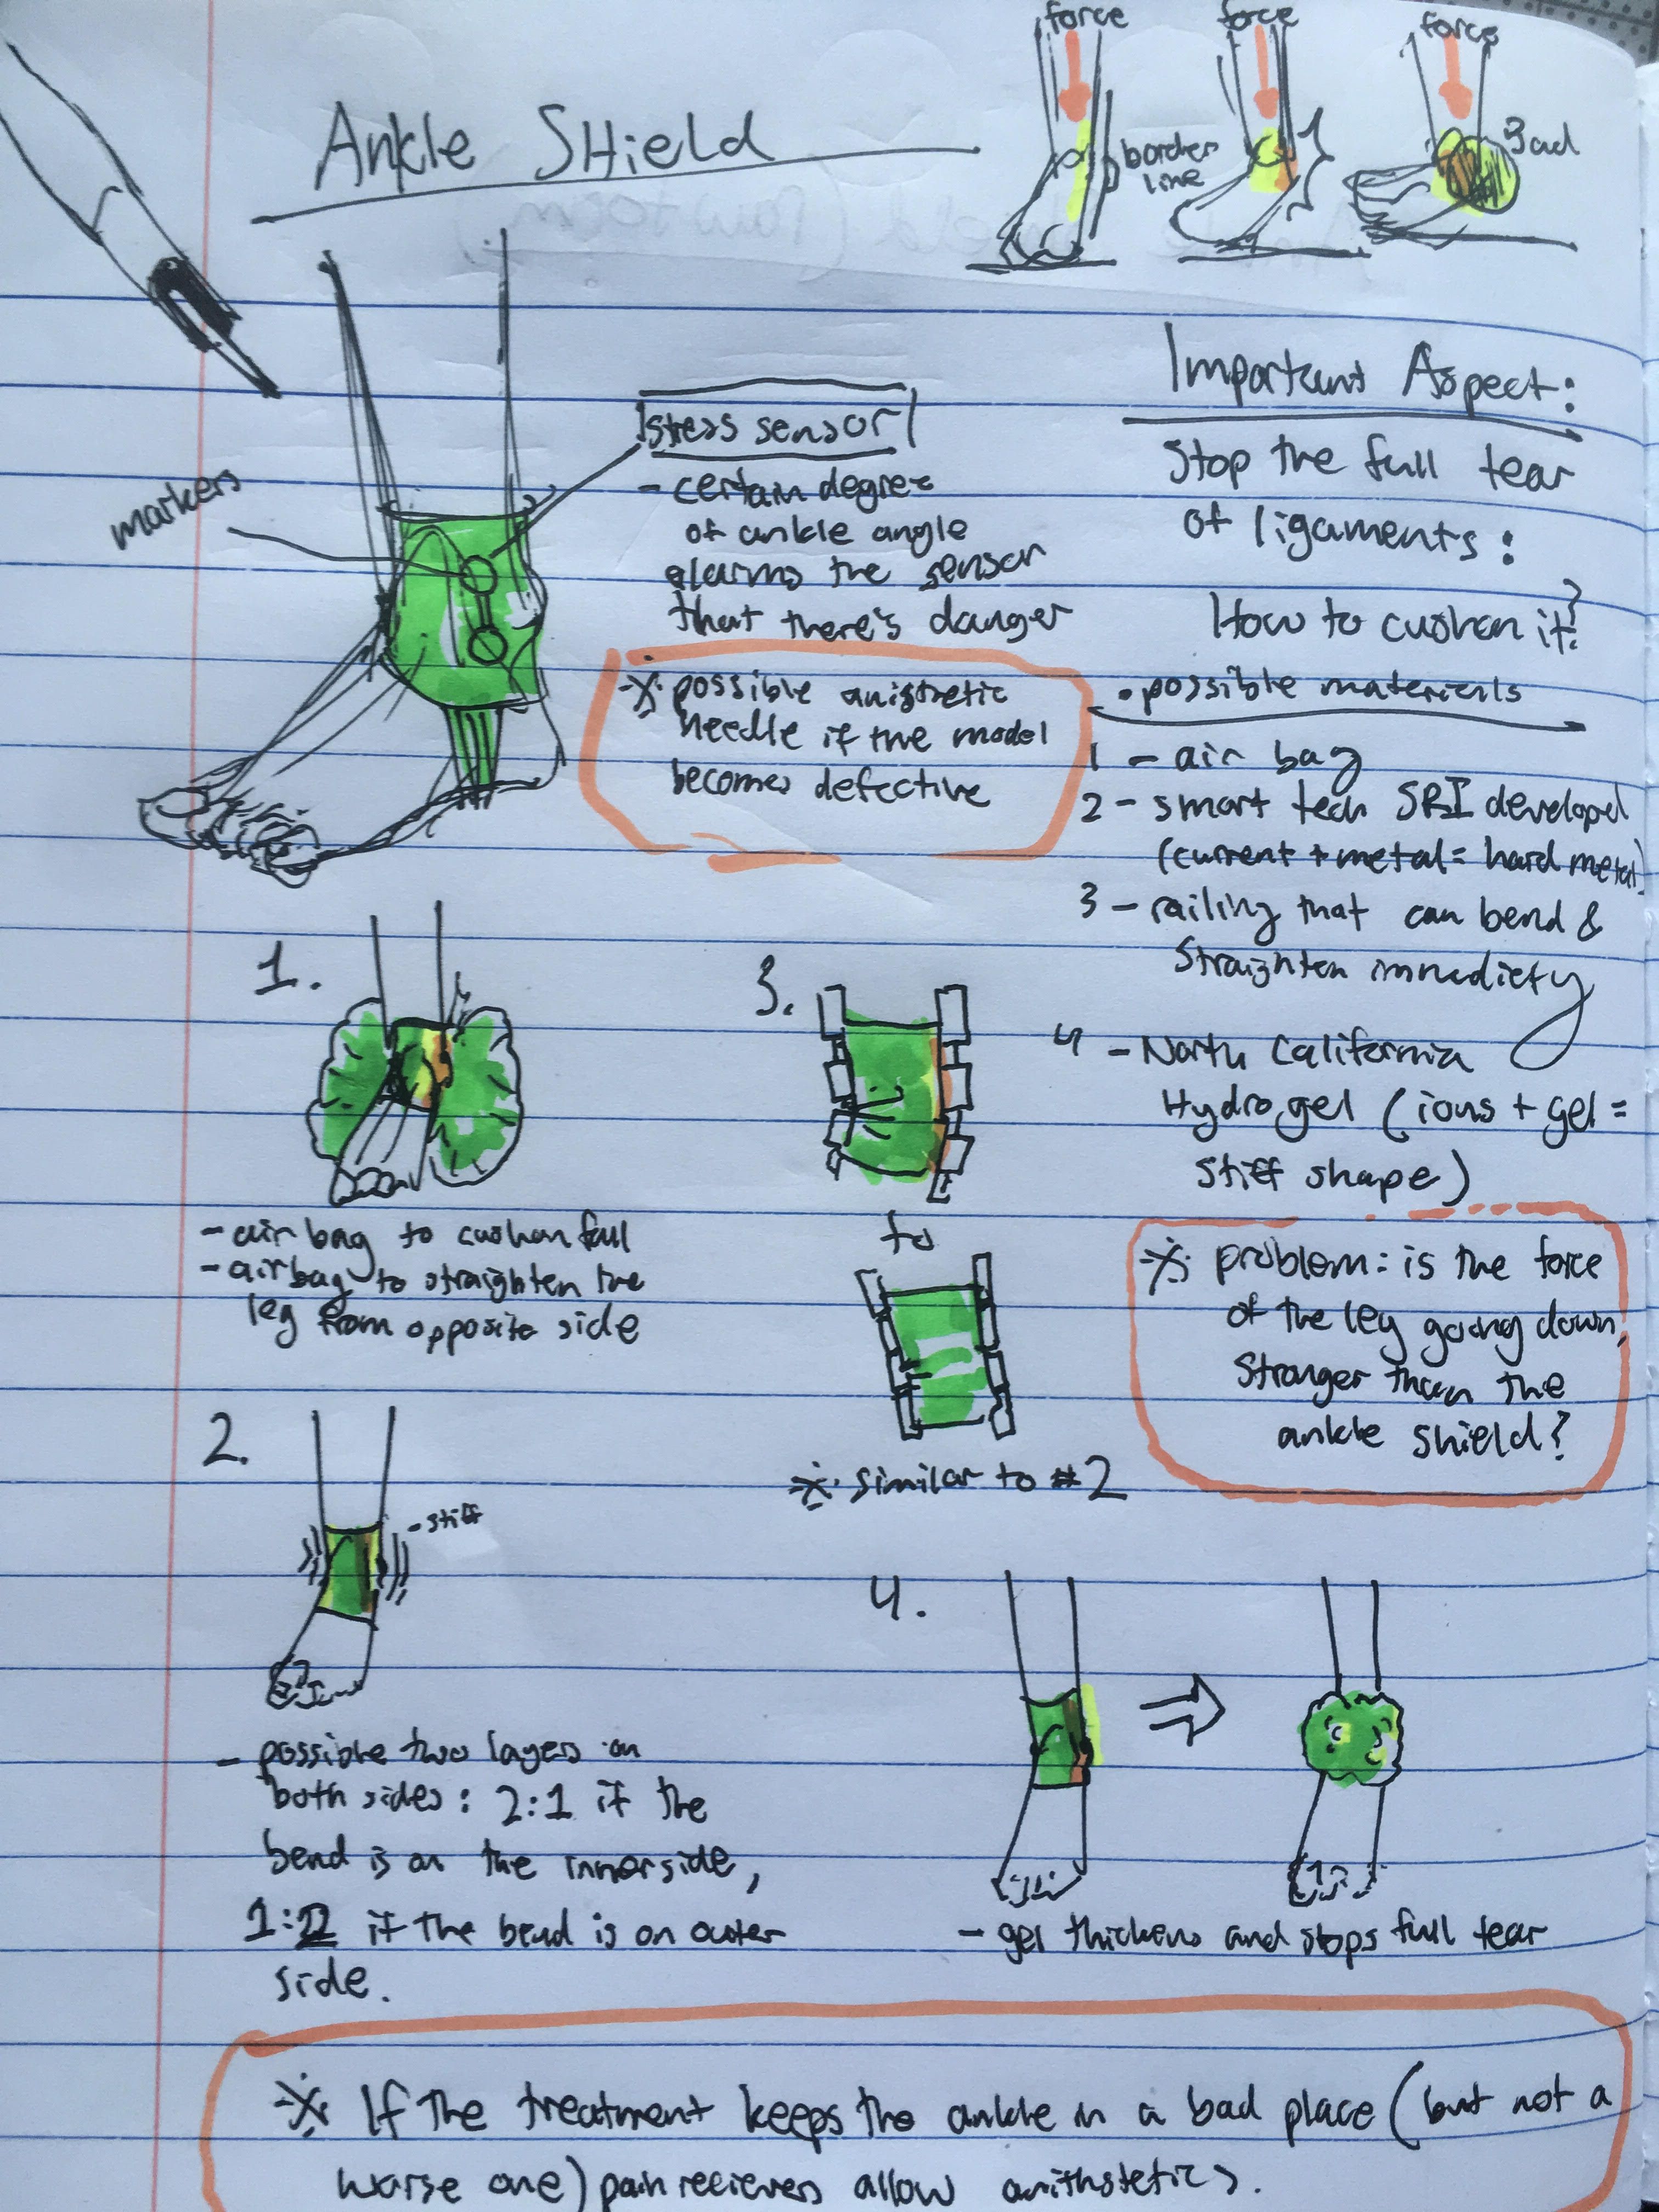 force
force
force
Ankle SHield
border
line
Bad
Important Aspect:
stress sensor
Stop the full tear
of ligaments:
markers
- certain degree
of ankle angle
alarms the sensor
that there's danger
How to cushon it?
※ possible anistretic
needle if the model
becomes defective
• possible materials
1 - air bag
2 - smart tech SRI developed
(current + metal = hard metal)
3 - railing that can bend &
Straighten immediety
4 - North California
Hydrogel (ions + gel =
stiff shape)
※ problem: is the force
of the leg going down,
stronger than the
ankle shield?
1.
- air bag to cushon fall
- airbag to straighten the
leg from opposite side
3.
to
※ similar to #2
2.
- stiff
- possible two layers on
both sides: 2:1 if the
bend is on the innerside,
1:2 if the bend is on outer
side.
4.
- gel thickens and stops full tear
※ If the treatment keeps the ankle in a bad place (but not a
worse one) pain recievers allow anithstetics.